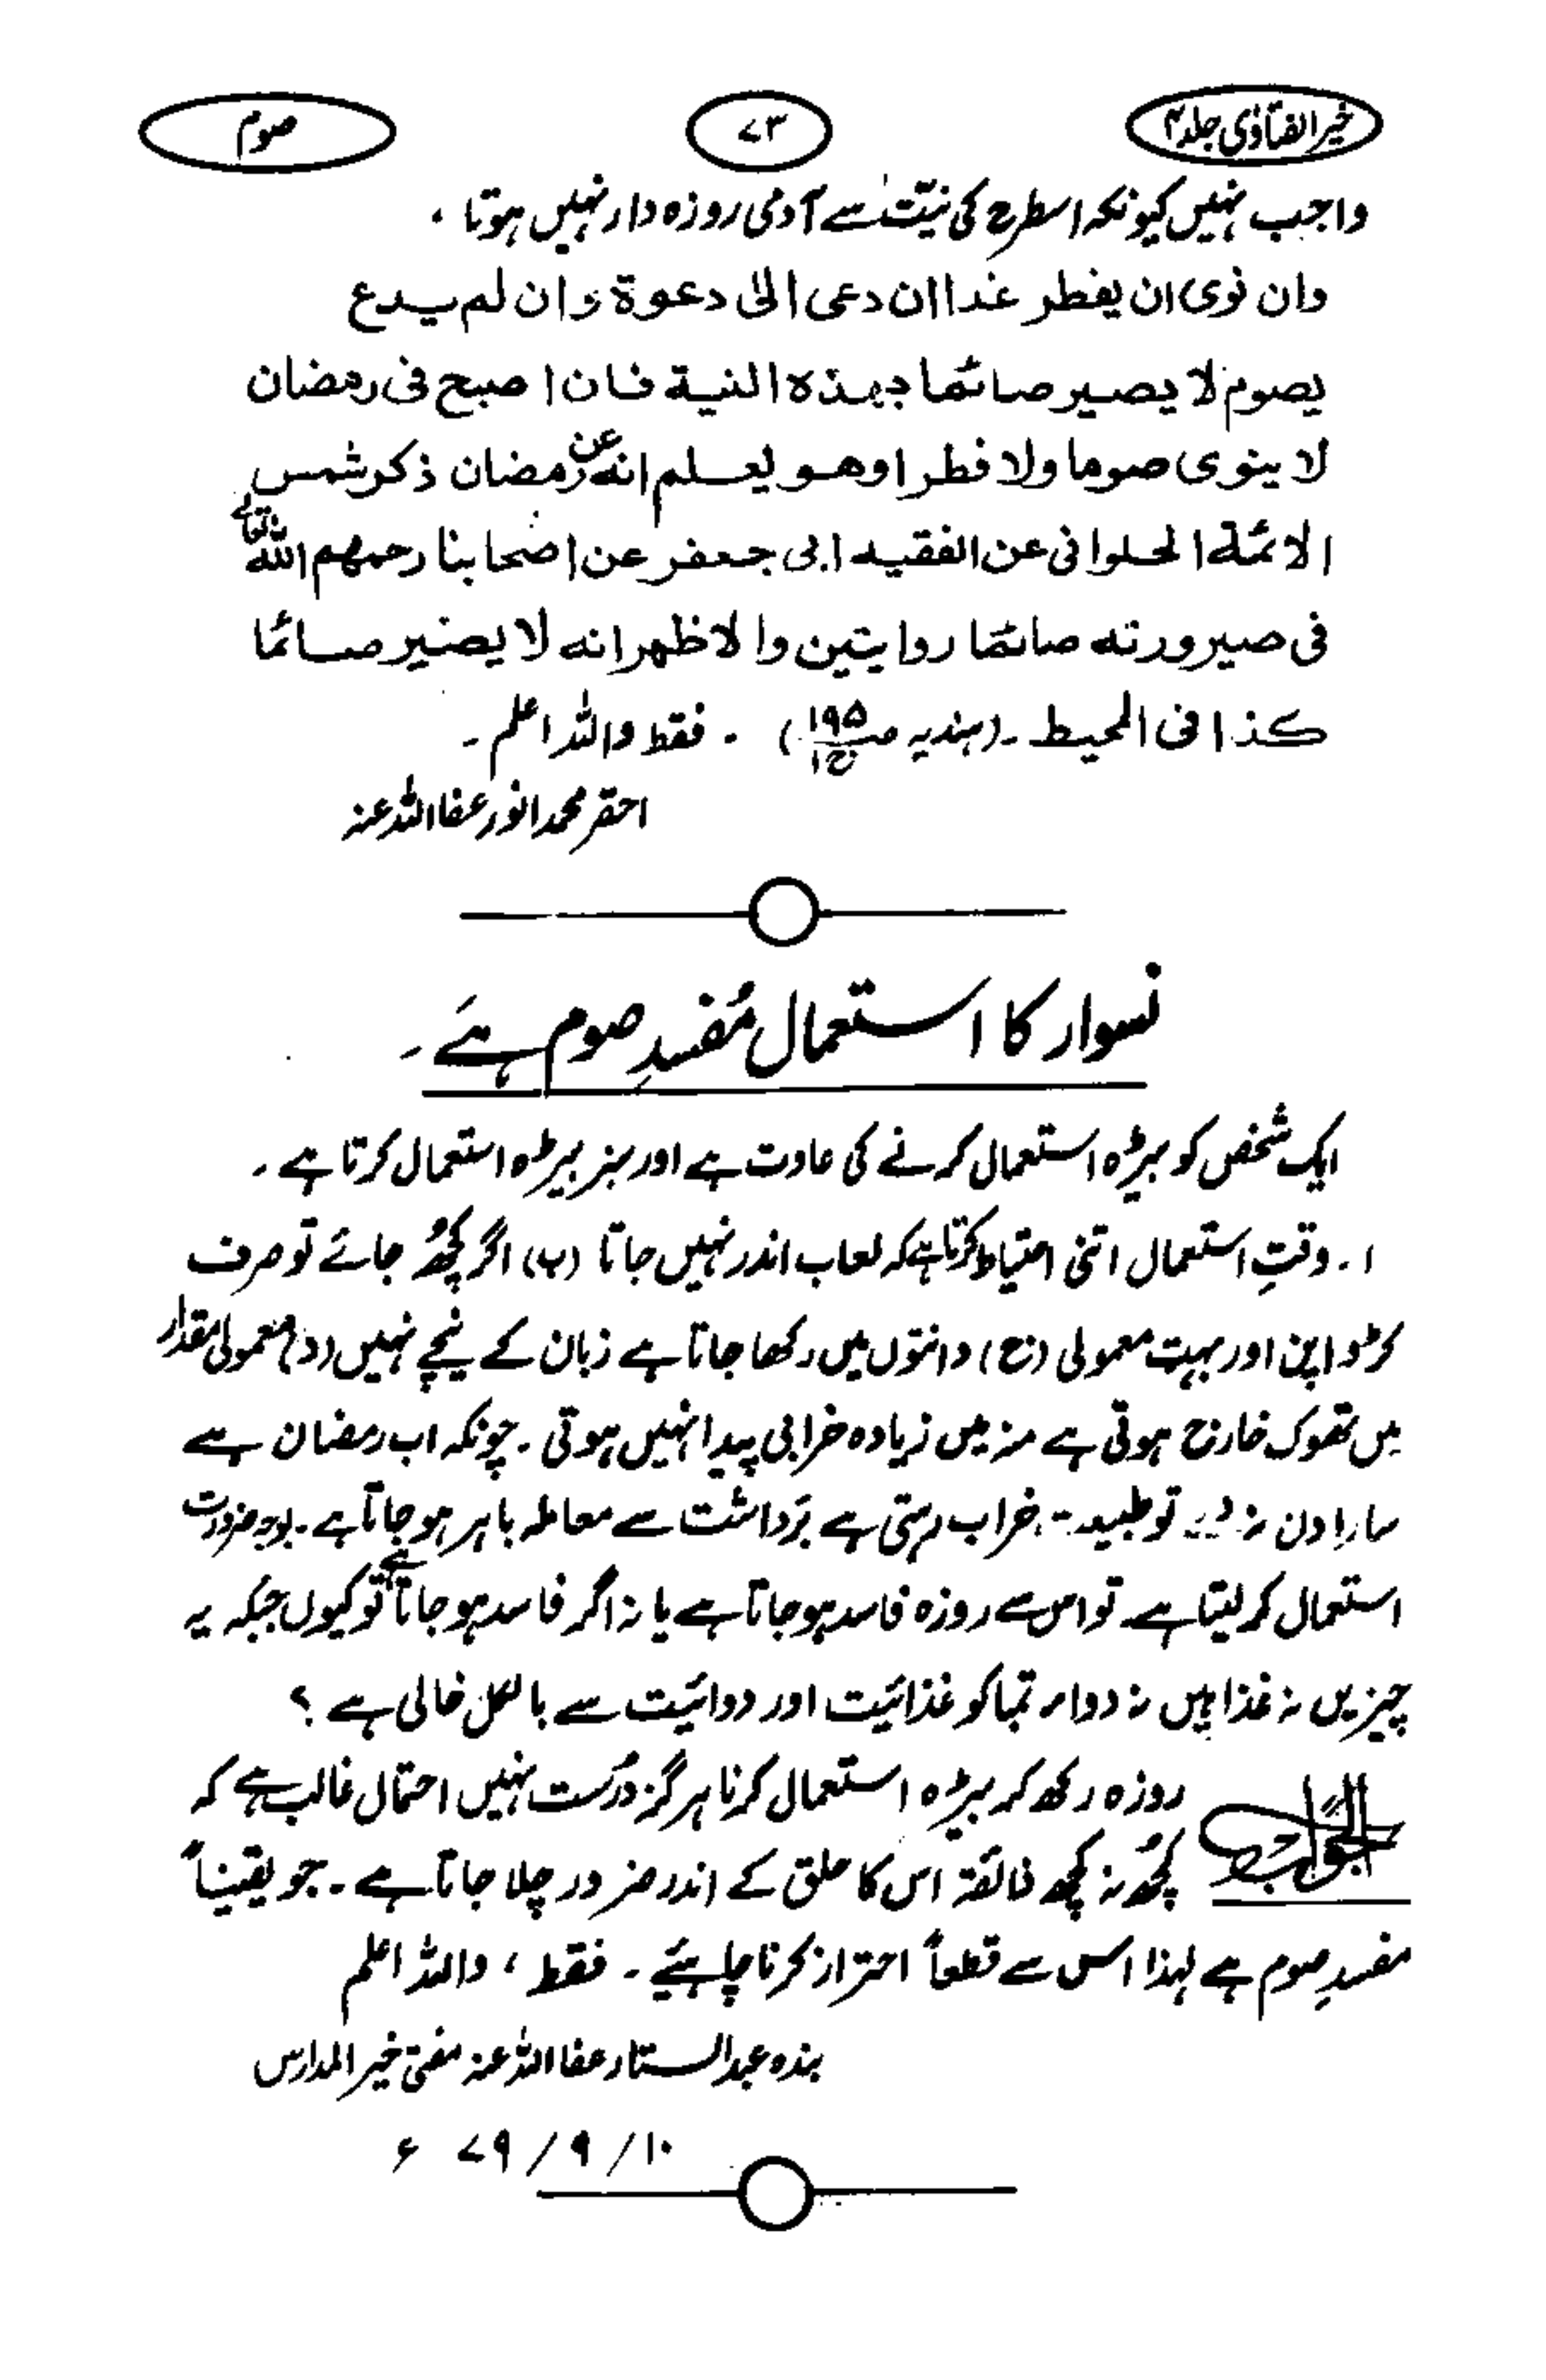 خیر الفتاوٰی جلد ۴
۷۳
صوم
واجب نہیں کیونکہ اسطرح کی نیّت سے آدمی روزہ دار نہیں ہوتا ۔
وان نوی ان یفطر غدا ان دعی الیٰ دعوۃ وان لم یدع
یصوم لا یصیر صائما بہذہ النیۃ فان اصبح فی رمضان
لا ینوی صوما ولا فطرا وھو یعلم انہ عن رمضان ذکر شمس
الائمۃ الحلوانی عن الفقیہ ابی جعفر عن اصحابنا رحمھم اللہ تعالےٰ
فی صیرورتہ صائما روایتین والاظھر انہ لا یصیر صائما
کذا فی المحیط ۔ (ہندیہ ص۱۹۵ ج۱) ۔ فقط واللہ اعلم ۔
احقر محمد انور عفا اللہ عنہ
نسوار کا استعمال مُفسدِ صوم ہے ۔
ایک شخص کو بیڑہ استعمال کرنے کی عادت ہے اور سبز بیڑہ استعمال کرتا ہے ۔
۱ ۔ وقتِ استعمال اتنی احتیاط کرتا ہے کہ لعاب اندر نہیں جاتا (ب) اگر کچھ جائے تو صرف
کڑوا پن اور بہت معمولی (ج) دانتوں میں رکھا جاتا ہے زبان کے نیچے نہیں (د) معمولی مقدار
میں تھوک خارج ہوتی ہے منہ میں زیادہ خرابی پیدا نہیں ہوتی ۔ چونکہ اب رمضان ہے
سارا دن نہ تو طبیعت خراب رہتی ہے بَرداشت سے معاملہ باہر ہو جاتا ہے ۔ بوجہ ضرورت
استعمال کر لیتا ہے تو اس سے روزہ فاسد ہو جاتا ہے یا نہ اگر فاسد ہو جاتا ہے تو کیوں جبکہ یہ
چیزیں نہ غذا ہیں نہ دوا ۔ تمباکو غذائیت اور دوائیت سے بالکل خالی ہے ؟
الجواب روزہ رکھ کر بیڑہ استعمال کرنا ہرگز دُرست نہیں احتمال غالب ہے کہ
کچھ نہ کچھ ذائقہ اس کا حلق کے اندر ضرور چلا جاتا ہے ۔ جو یقیناً
مفسدِ صوم ہے لہذا اس سے قطعاً احتراز کرنا چاہیئے ۔ فقط ، واللہ اعلم
بندہ عبدالستار عفا اللہ عنہ مفتی خیر المدارس
۱۰ / ۹ / ۷۹ ء